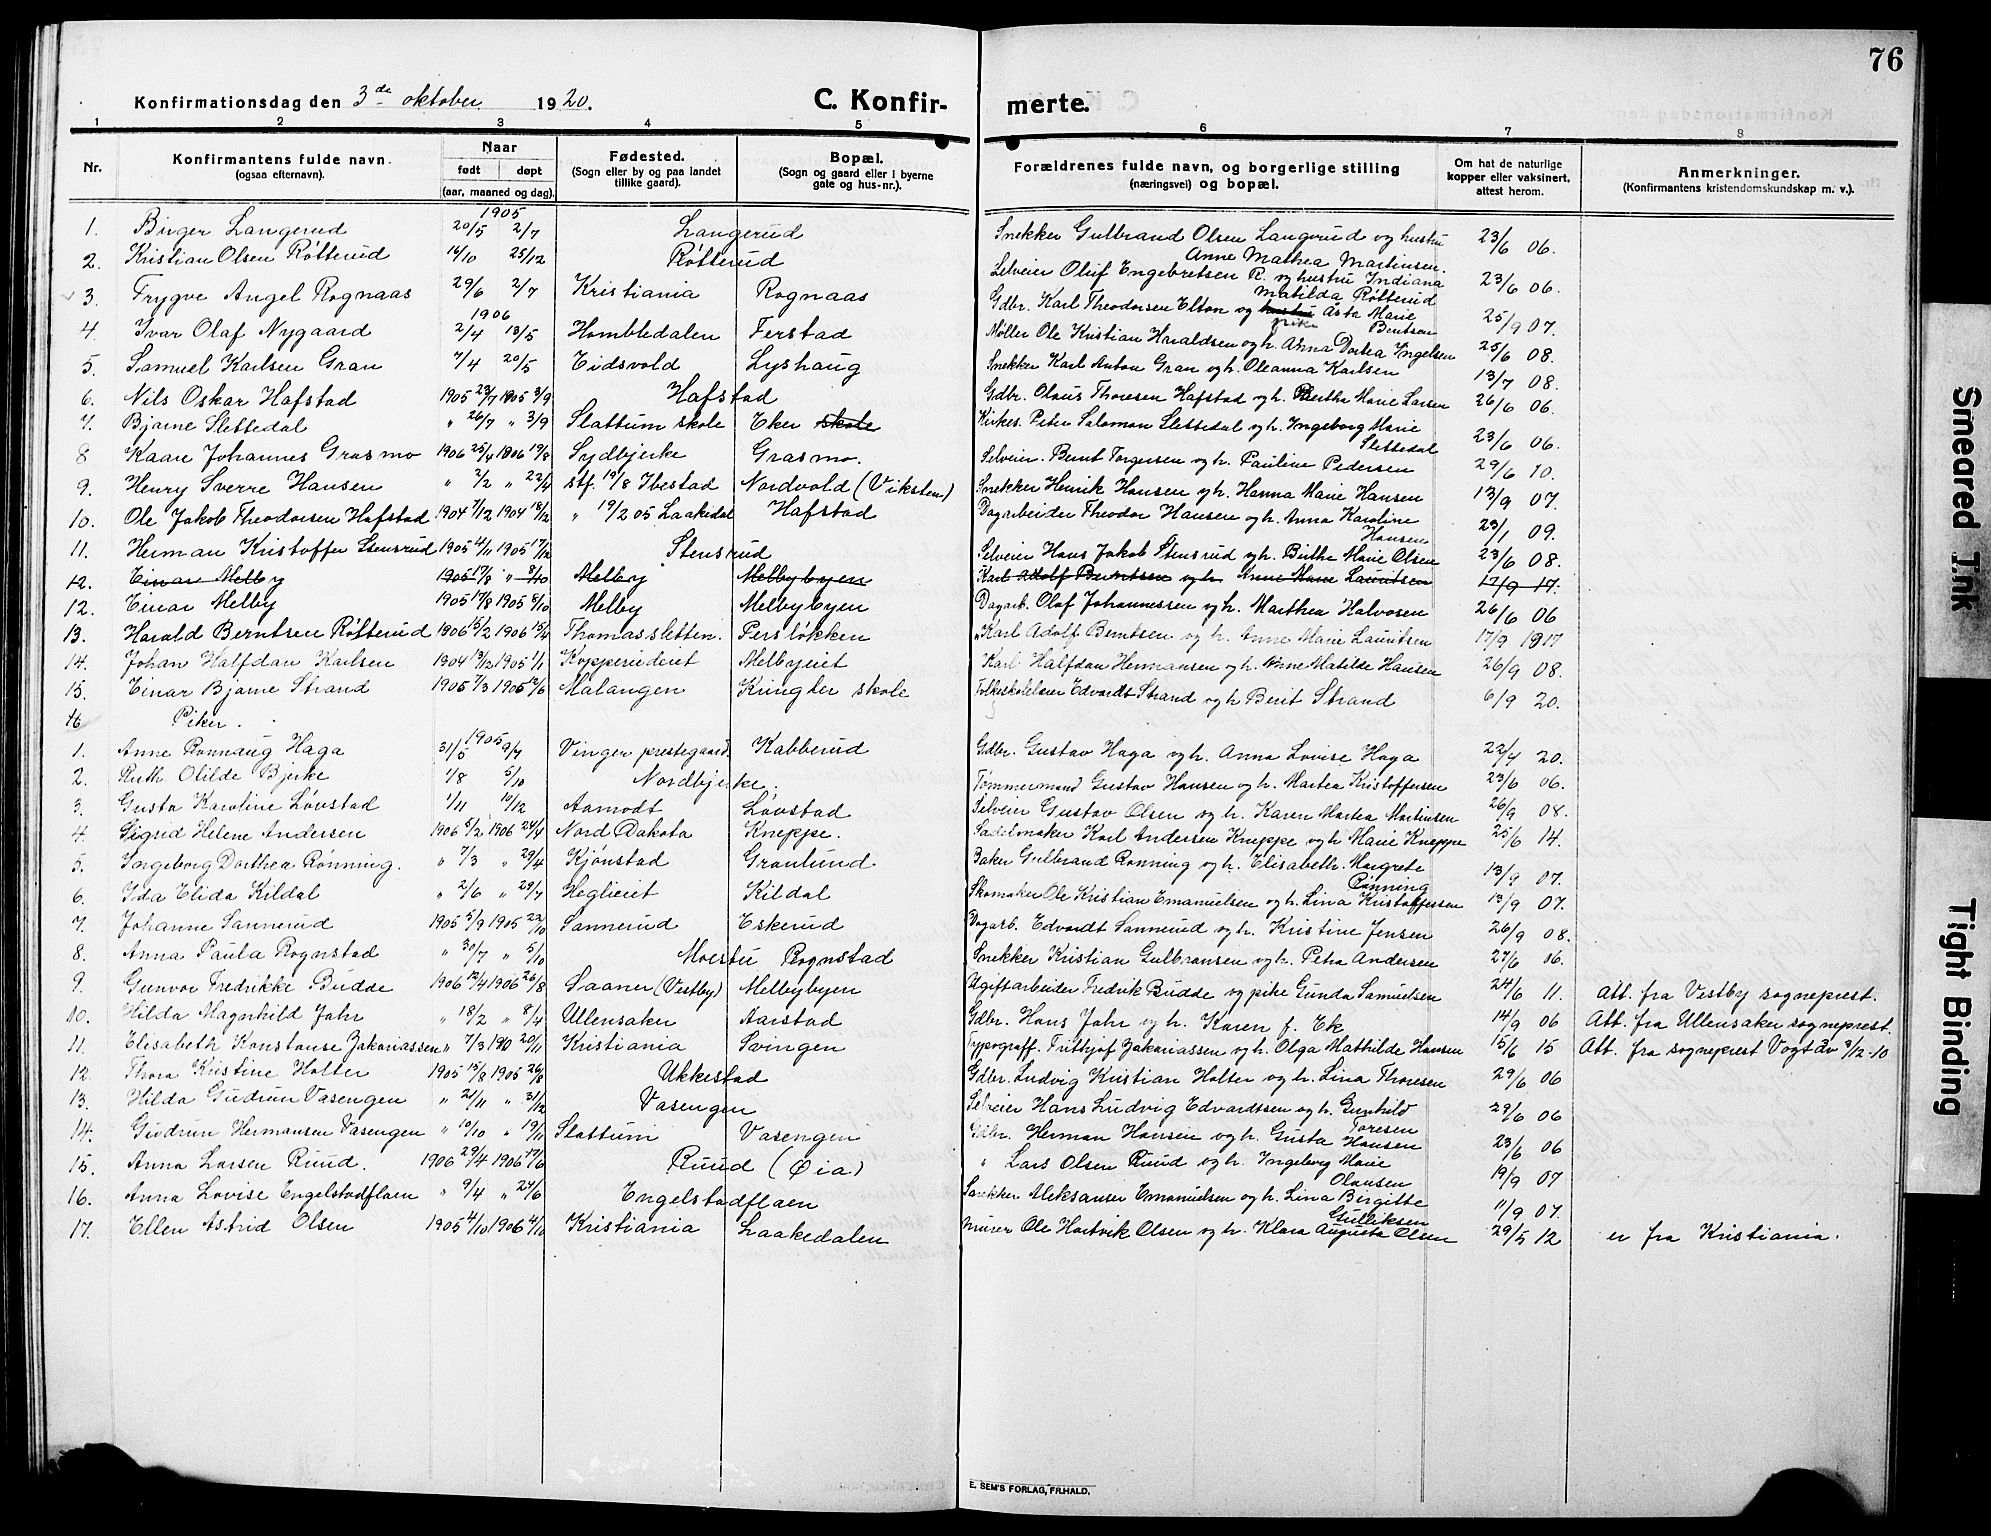 76
Konfirmationsdag den 3de oktober 1920.
C. Konfir-
merte.
1 2 3 4 5
6 7 8
Nr.
Konfirmantens fulde navn.
(ogsaa efternavn).
Naar
født døpt
(aar, maaned og dag).
Fødested.
(Sogn eller by og paa landet
tillike gaard).
Bopæl.
(Sogn og gaard eller i byerne
gate og hus-nr.).
Forældrenes fulde navn, og borgerlige stilling
(næringsvei) og bopæl.
Om hat de naturlige
kopper eller vaksinert,
attest herom.
Anmerkninger.
(Konfirmantens kristendomskundskap m. v.).
1905
1. Birger Langerud 20/5 2/7 Langerud Snekker Gulbrand Olsen Langerud og hustru Anne Mathea Martinsen. 23/6 06.
2. Kristian Olsen Røtterud 16/10 25/12 Røtterud Selveier Oluf Engebretsen R. og hustru Indiana Matilda Røtterud 23/6 06.
3. Trygve Angel Rognaas 29/6 2/7 Kristiania Rognaas Gdbr. Karl Theodorsen Elton og hustru pike Asta Marie Bentsen 25/9 07.
1906
4. Ivar Olaf Nygaard 2/4 13/5 Hombledalen Ferstad Møller Ole Kristian Haraldsen og h. Anna Dortea Ingelsen 25/6 08.
5. Samuel Karlsen Gran 7/4 20/5 Eidsvold Lyshaug Snekker Karl Anton Gran og h. Oleanna Karlsen 13/7 08.
6. Nils Oskar Hafstad 1905 23/7 1905 3/9 Hafstad Gdbr. Olaus Thoresen Hafstad og h. Berthe Marie Larsen 26/6 06.
7. Bjarne Slettedal " 26/7 " 3/9 Slattum skole Eker skole Kirkes. Peter Salomon Slettedal og h. Ingeborg Marie Slettedal 23/6 06.
8 Kaare Johannes Grasmo 1906 25/4 1906 19/8 Sydbjerke Grasmo. Selveier. Bernt Torgersen og h. Pauline Pedersen 29/6 10.
9. Henry Sverre Hansen " 2/2 " 22/4 stf. 19/8 Ibestad Nordvold (Viksten) Snekker Henrik Hansen og h. Hanna Marie Hansen 13/9 07.
10. Ole Jakob Theodorsen Hafstad 1904 7/12 1904 18/12 " 19/2 05 Laakedal Hafstad Dagarbeider Theodor Hansen og h. Anna Karoline Hansen 23/1 09.
11. Herman Kristoffer Stensrud 1905 4/11 1905 17/12 Stensrud Selveier Hans Jakob Stensrud og h. Birthe Marie Olsen 23/6 08.
12. Einar Melby 1905 17/8 " 8/10 Melby Melbybyen Karl Adolf Berntsen og h. Anne Marie Lauritsen 17/9 17.
12. Einar Melby 1905 17/8 1905 8/10 Melby Melbybyen Dagarb. Olaf Johannessen og h. Marthea Halvosen 26/6 06
13. Harald Berntsen Røtterud 1906 5/2 1906 15/4 Thomassletten. Persløkken " Karl Adolf Berntsen og h. Anne Marie Lauritsen 17/9 1917
14. Johan Halfdan Karlsen 1904 13/12 1905 1/1 Kopperudeiet Melbyeiet Karl Halfdan Hermansen og h. Anne Matilde Hansen 26/9 08.
15. Einar Bjarne Strand 1905 7/3 1905 12/6 Malangen Kringler skole Folkeskolelærer Edvardt Strand og h Berit Strand 6/9 20.
16 Piker.
1905
1. Anne Rønnaug Haga 31/5 9/7 Vinger prestegaard. Kabberud Gdbr. Gustav Haga og h. Anna Lovise Haga 22/4 20.
2. Ruth Olilde Bjerke 1/8 5/10 Nordbjerke. Tømmermand Gustav Hansen og h. Martea Kristoffersen 23/6 06.
3. Gusta Karoline Løvstad 1/11 10/12 Aamodt Løvstad Selveier Gustav Olsen og h. Karen Martea Martinsen 26/9 08.
4. Sigrid Helene Andersen 1906 5/2 1906 24/4 Nord Dakota Kneppe. Sadelmaker Karl Andersen Kneppe og h Marie Kneppe 25/6 14.
5. Ingeborg Dorthea Rønning. " 7/3 " 29/4 Kjønstad Granlund Baker Gulbrand Rønning og h. Elisabeth Margrete Rønning 13/9 07.
6. Ida Elida Kildal " 2/6 " 29/7 Heglieiet Kildal Skomaker Ole Kristian Emanuelsen og h. Lina Kristoffersen 13/9 07.
7. Johanne Sannerud 1905 5/9 1905 22/10 Sannerud Eskerud Dagarb. Edvardt Sannerud og h. Kristine Jensen 26/9 08.
8. Anna Paula Rognstad " 30/7 " 5/10 Moestu Rognstad Snekker Kristian Gulbransen og h. Petra Andersen 27/6 06.
9. Gunvor Fredrikke Budde 1906 12/4 1906 26/8 Saaner (Vestby) Melbybyen Ugift arbeider Fredrik Budde og pike Gunda Samuelsen 24/6 11. Att. fra Vestby sogneprest.
10. Hilda Magnhild Jahr " 18/2 " 8/4 Ullensaker Aarstad Gdbr. Hans Jahr og h. Karen f. Ek 14/9 06 Att. fra Ullensaker sogneprest.
11. Elisabeth Konstanse Zakariassen " 7/3 1910 20/11 Kristiania Svingen Typograff. Frithjof Zakariassen og h. Olga Mathilde Hansen 15/6 15 Att. fra sogneprest Vogt av 3/12-10
12. Thora Kristine Holter 1905 15/8 1905 26/8 Ukkestad Gdbr. Ludvig Kristian Holter og h. Lina Thoresen 29/6 06
13. Hilda Gudrun Vasengen " 21/11 " 31/12 Vasengen Selveier Hans Ludvig Edvardtsen og h. Gunhild Toresen 29/6 06
14. Gudrun Hermansen Vasengen " 10/10 " 19/11 Slattum Vasengen Gdbr. Herman Hansen og h. Gusta Hansen 23/6 06
15. Anna Larsen Ruud. 1906 29/4 1906 17/6 Ruud (Øia) " Lars Olsen Ruud og h. Ingeborg Marie Olausen 19/9 07
16. Anna Lovise Engelstadflaen " 9/4 " 24/6 Engelstadflaen Snekker Aleksanser Emanuelsen og h. Lina Birgitte Gulliksen 11/9 07.
17. Ellen Astrid Olsen 1905 4/10 1906 4/10 Kristiania Laakedalen Murer Ole Hartvik Olsen og h. Klara Augusta Olsen 29/5 12 er fra Kristiania.
E. SEM'S FORLAG, FR.HALD.
Smeared Ink
Tight Binding